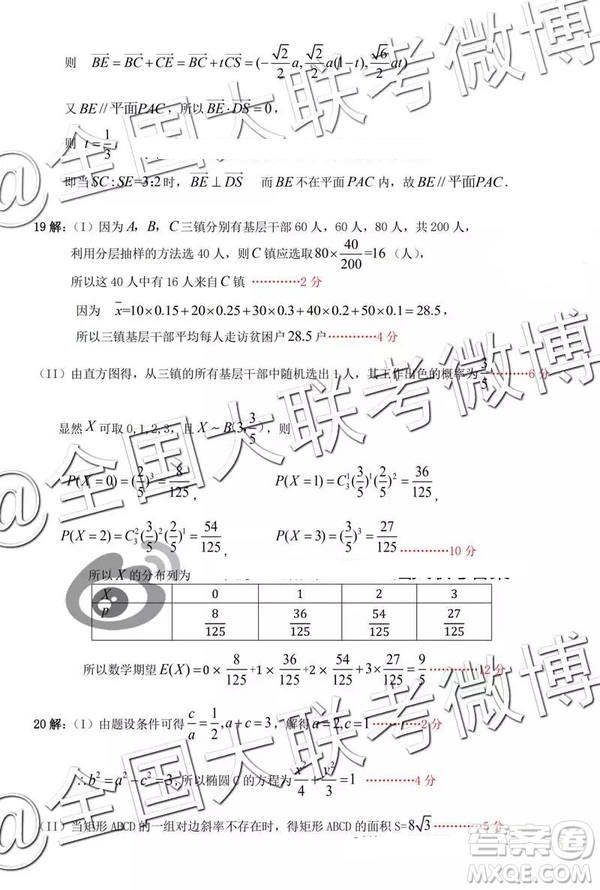 则 $\overrightarrow{BE}=\overrightarrow{BC}+\overrightarrow{CE}=\overrightarrow{BC}+t\overrightarrow{CS}=(-\frac{\sqrt{2}}{2}a,\frac{\sqrt{2}}{2}a(1-t),\frac{\sqrt{6}}{2}at)$
又 BE // 平面PAC，所以 $\overrightarrow{BE}\cdot\overrightarrow{DS}=0$，
则 $t=\frac{1}{3}$
即当 SC:SE=3:2 时，$\overrightarrow{BE}\perp\overrightarrow{DS}$ 而 BE 不在平面 PAC 内，故 BE // 平面PAC．
19 解：（I）因为 A，B，C 三镇分别有基层干部 60 人，60 人，80 人，共 200 人，
利用分层抽样的方法选 40 人，则 C 镇应选取 $80\times\frac{40}{200}=16$（人），
所以这 40 人中有 16 人来自 C 镇 …………2 分
因为 $\overline{x}=10\times0.15+20\times0.25+30\times0.3+40\times0.2+50\times0.1=28.5$，
所以三镇基层干部平均每人走访贫困户 28.5 户…………4 分
（II）由直方图得，从三镇的所有基层干部中随机选出 1 人，其工作出色的概率为 $\frac{3}{5}$…………6 分
显然 X 可取 0,1,2,3，且 $X\sim B(3,\frac{3}{5})$，则
$P(X=0)=(\frac{2}{5})^3=\frac{8}{125}$， $P(X=1)=C_3^1(\frac{3}{5})^1(\frac{2}{5})^2=\frac{36}{125}$
$P(X=2)=C_3^2(\frac{3}{5})^2(\frac{2}{5})^1=\frac{54}{125}$， $P(X=3)=(\frac{3}{5})^3=\frac{27}{125}$ …………10 分
所以 X 的分布列为
X 0 1 2 3
P $\frac{8}{125}$ $\frac{36}{125}$ $\frac{54}{125}$ $\frac{27}{125}$
所以数学期望 $E(X)=0\times\frac{8}{125}+1\times\frac{36}{125}+2\times\frac{54}{125}+3\times\frac{27}{125}=\frac{9}{5}$…………12 分
20 解：（I）由题设条件可得 $\frac{c}{a}=\frac{1}{2},a+c=3$，解得 $a=2,c=1$…………2 分
$\therefore b^2=a^2-c^2=3$，所以椭圆 C 的方程为 $\frac{x^2}{4}+\frac{y^2}{3}=1$ …………4 分
（II）当矩形 ABCD 的一组对边斜率不存在时，得矩形 ABCD 的面积 S=$8\sqrt{3}$ …………5 分
@全国大联考微博
@全国大联考微博
@全国大联考微博
答案圈
MXQE.COM